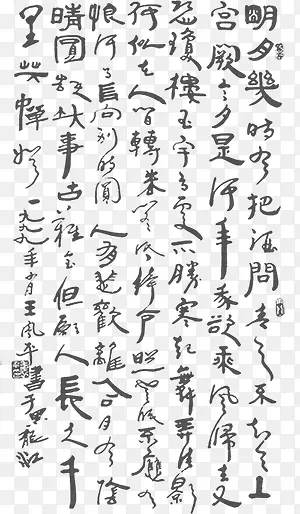 明月幾时有把酒問青天不知天上
宫阙今夕是何年我欲乘风歸去又
恐瓊樓玉宇高處不勝寒起舞弄清影
何似在人间轉朱阁低绮户照無眠不應有
恨何事長向别时圆人有悲歡離合月有陰
晴圆缺此事古難全但願人長久千
里共嬋娟一九九年月王风平書于黑龍江